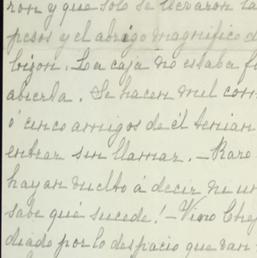 ron y que solo se llevaron la
pesos y el abrigo magnifico d
La caja no estaba f
abierta. Se hacen mil com
ó cinco amigos de él tenian
entrar sin llamar. - Raro
hayan vuelto á decir ne un
sabe qué sucede! - Vino Che
diado por lo despacio que van